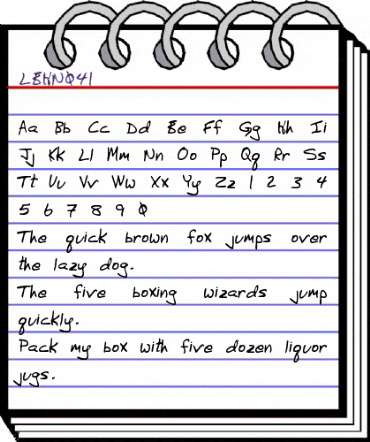 LEHN041
Aa Bb Cc Dd Ee Ff Gg Hh Ii
Jj Kk Ll Mm Nn Oo Pp Qq Rr Ss
Tt Uu Vv Ww Xx Yy Zz 1 2 3 4
5 6 7 8 9 0
The quick brown fox jumps over
the lazy dog.
The five boxing wizards jump
quickly.
Pack my box with five dozen liquor
jugs.